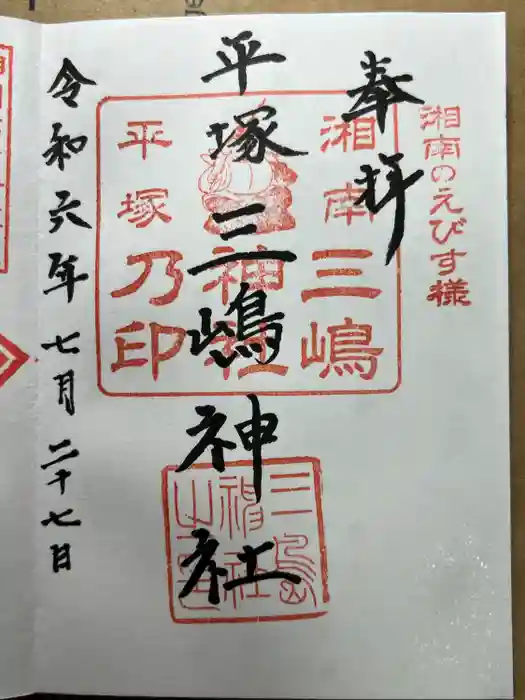 湘南のえびす様
奉拝
湘南三嶋
神社
平塚乃印
平塚三嶋神社
三島
神社
令和六年七月二十七日